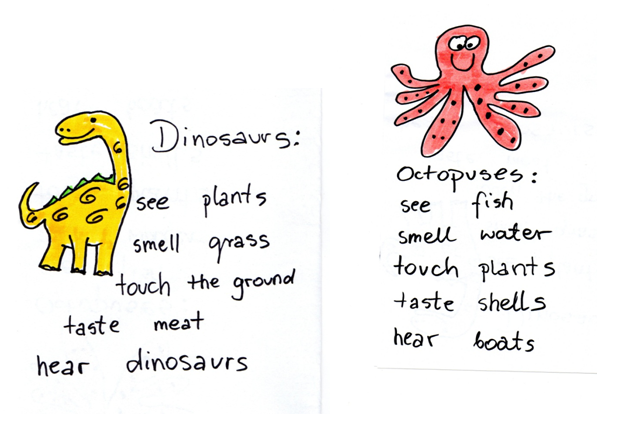 Dinosaurs:
see plants
smell grass
touch the ground
taste meat
hear dinosaurs
Octopuses:
see fish
smell water
touch plants
taste shells
hear boats